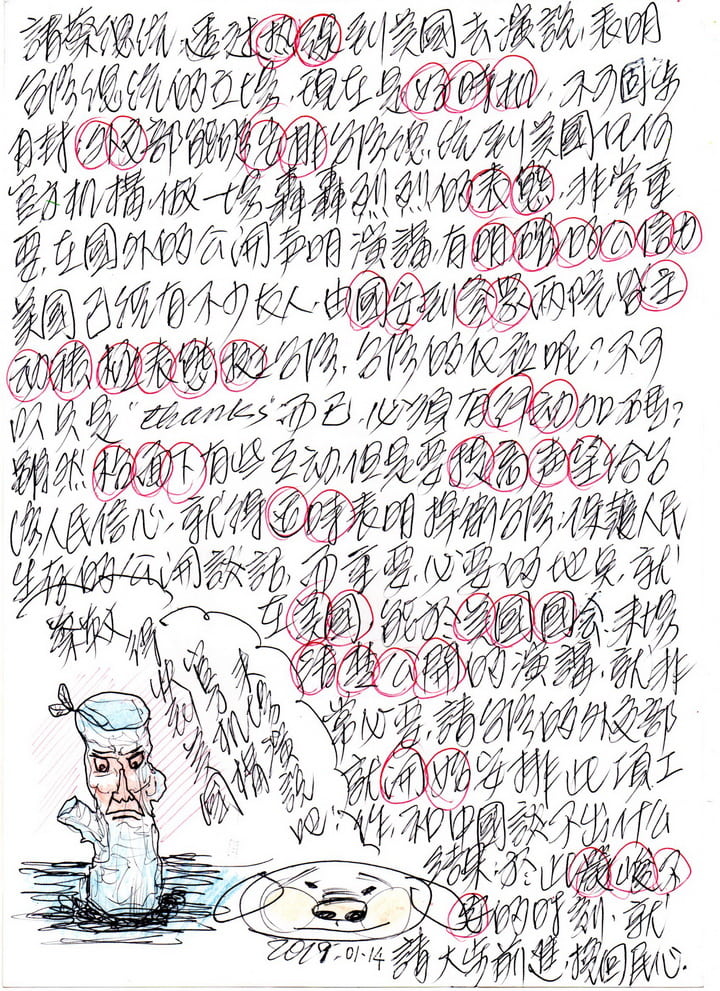 請蔡總統,透过热線到美國去演說,表明
台灣總統的立場,現在是好時机,不可固步
自封,外交部能够安排台灣總統到美國任何
官方机構,做一場轟轟烈烈的表態,非常重
要,在國外的公開声明演講,有明確的公信力
美國已經有不少友人,由國安到參眾兩院,皆主
动積极表態挺台灣,台灣的反应呢?不可
以只是"thanks"而已,必須有行动加碼?
雖然私底下有些互动但是要提高声望給台
湾人民信心,就得适时表明捍衛台灣,保護人民
生存的公開談話,而重要,必要的地点,就
在美國,能於美國國会,来場
清楚公開的演講,就非
常必要,請台灣的外交部
就開始安排此項工
作,和中國談不出什么
結果,於此嚴峻不
的时刻,就
請大步前進,挽回民心.
机構演說
吧!
2019-01-14